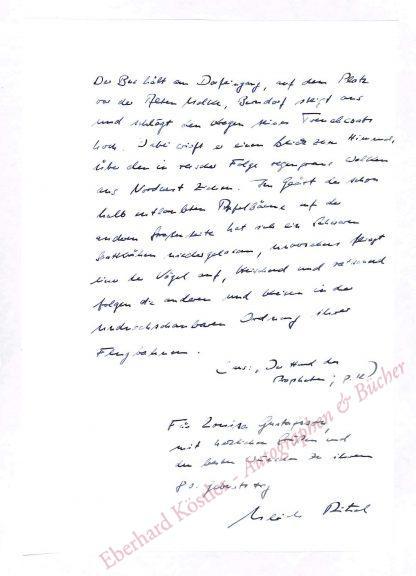 Der Bus hält am Dorfeingang, auf dem Platz
vor der Alten Molkerei, Berndorf steigt aus
und schlägt den Kragen seines Trenchcoats
hoch. Dabei wirft er einen Blick zum Himmel,
über den in rascher Folge regengraue Wolken
aus Nordwest ziehen. Im Geäst der schon
halb entlaubten Pappelbäume auf der
anderen Straßenseite hat sich ein Schwarm
Saatkrähen niedergelassen, unversehens fliegt
einer der Vögel auf, kreischend und
folgen die anderen und in der
undurchschaubaren Ordnung ihrer
Flugbahnen.
(aus: Die Hand des
Propheten,
Für Louisa Gustavsson,
mit herzlichen Grüßen und
den besten Wünschen zu ihrem
83. Geburtstag
Ulrich Ritzel
Eberhard Köstler - Autographen & Bücher